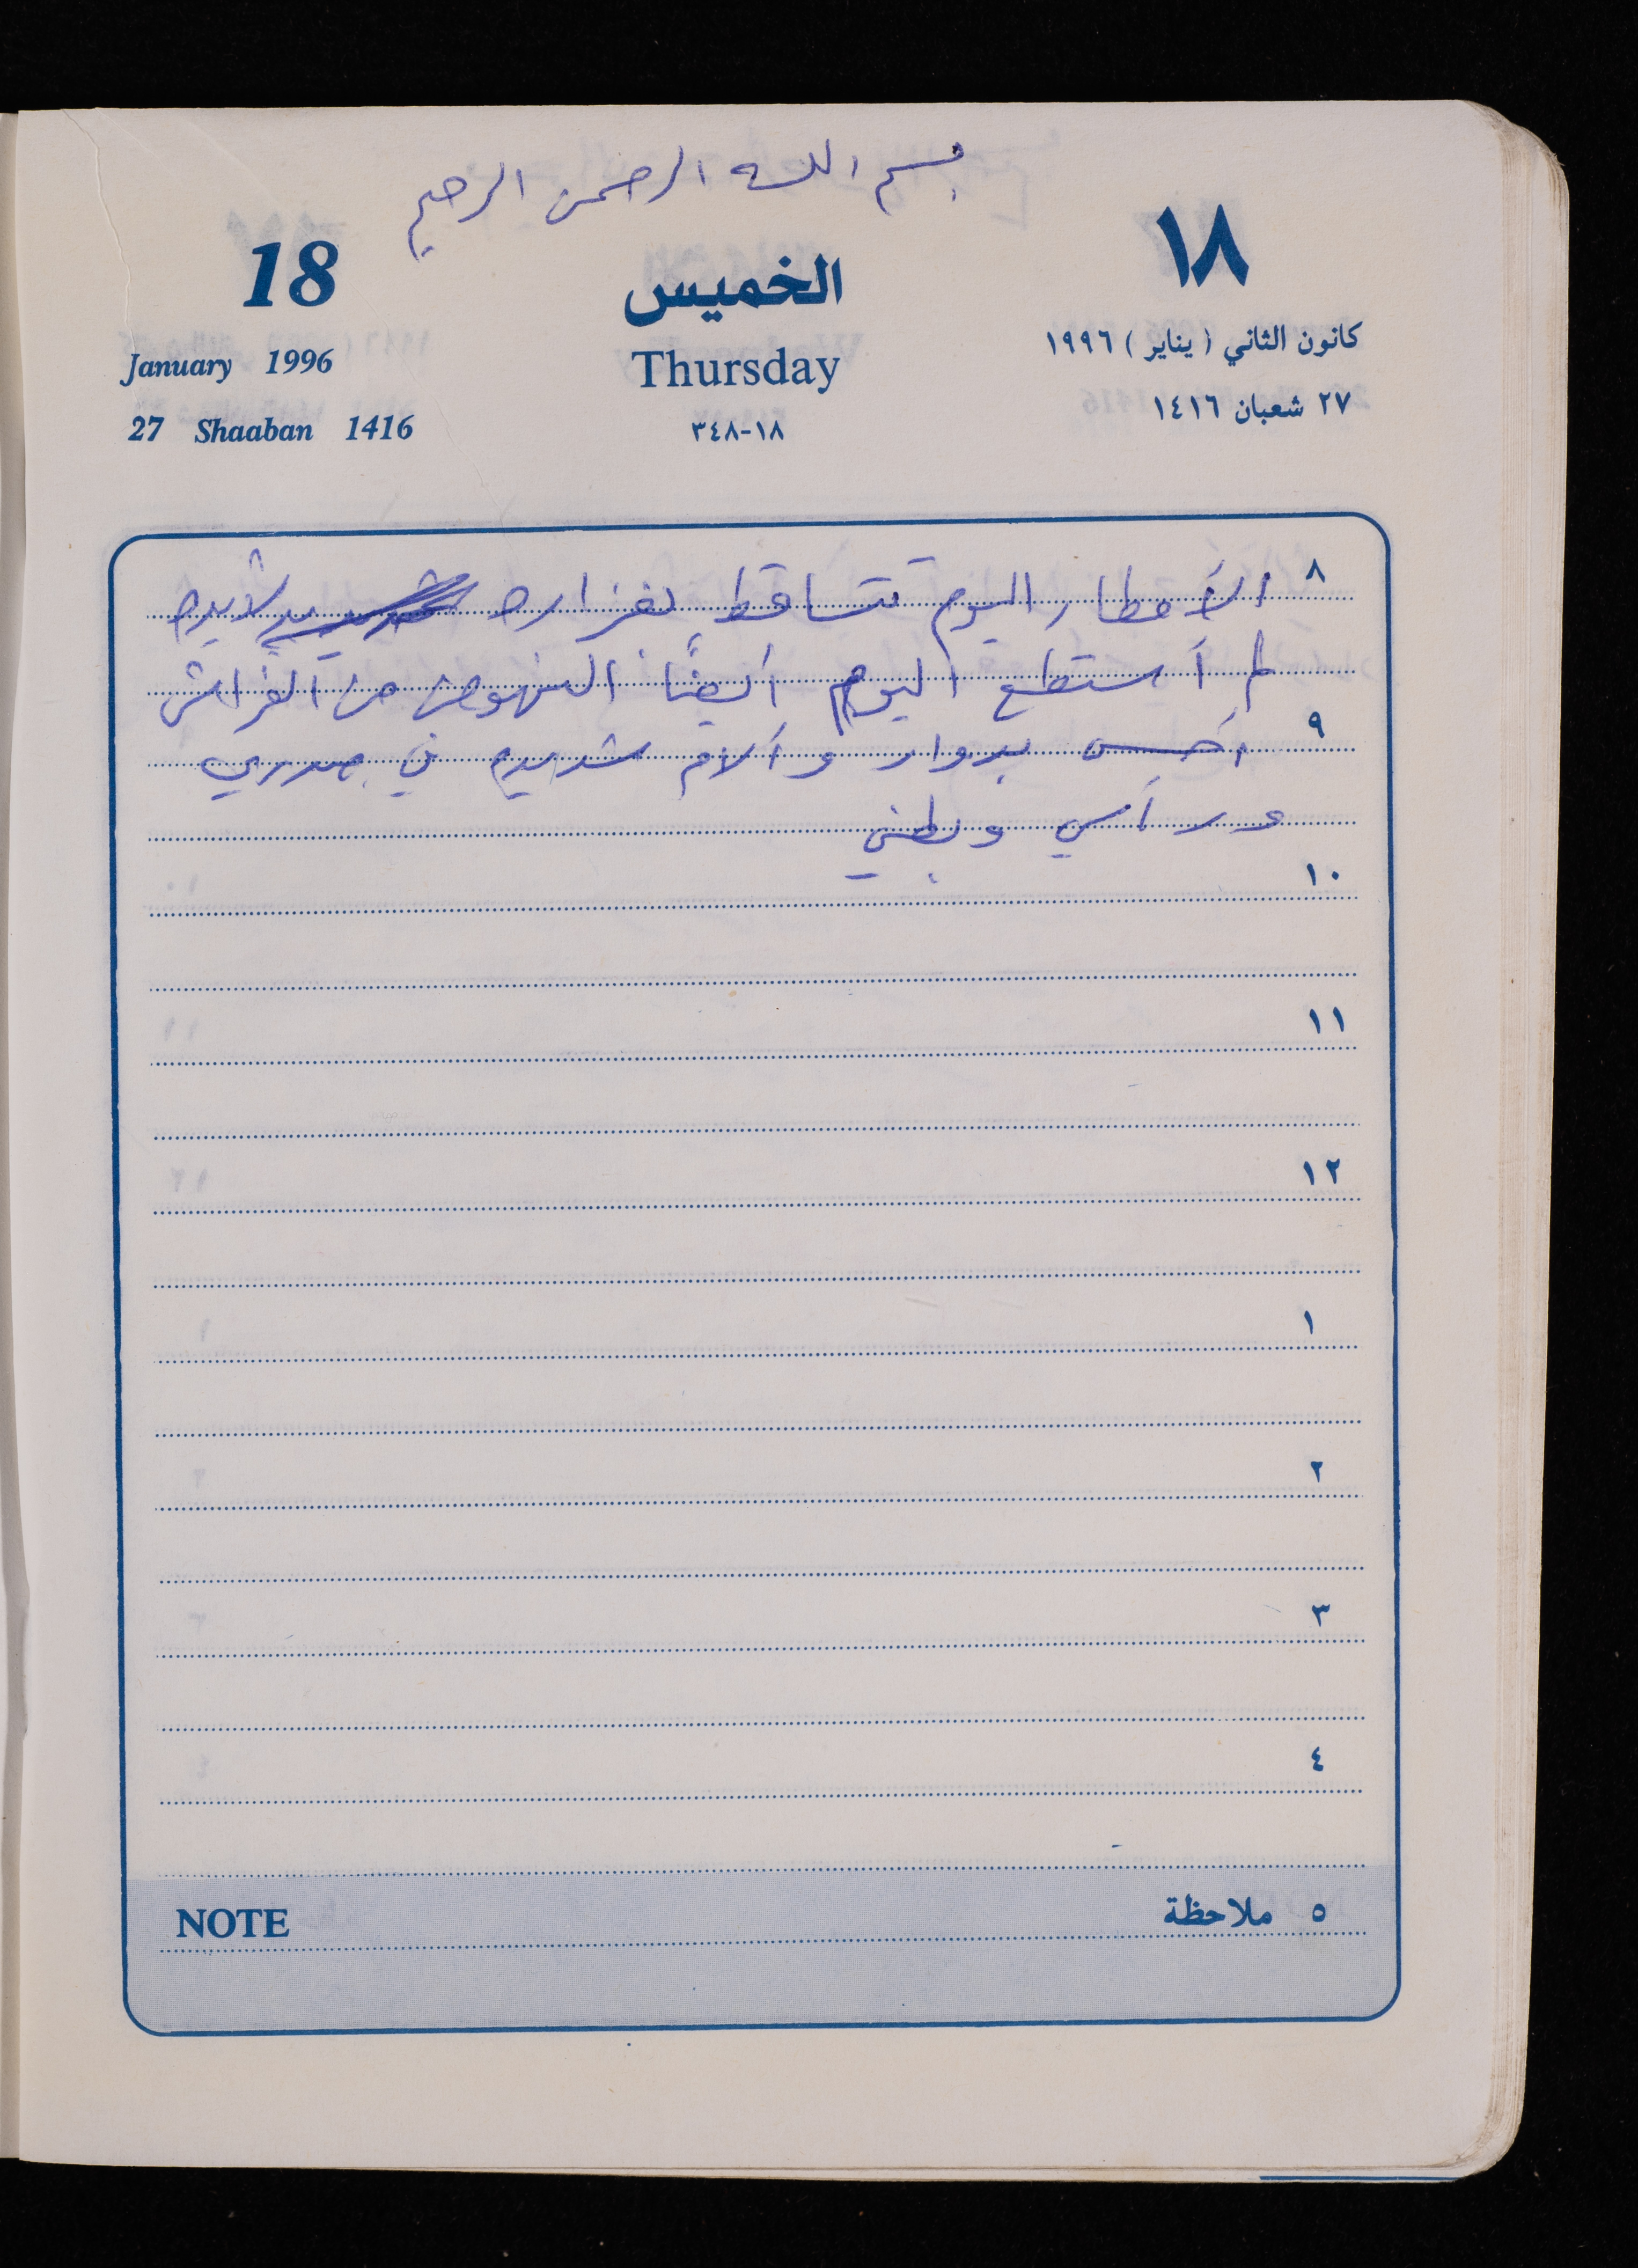 بسم الله الرحمن الرحيم
18 الخميس ١٨
January 1996 Thursday كانون الثاني ( يناير ) ١٩٩٦
27 Shaaban 1416 ١٨-٣٤٨ ٢٧ شعبان ١٤١٦
٨ الأمطار اليوم تتساقط بغزاره شديده
لم أستطع اليوم أيضاً النهوض من الفراش
٩ أحس بدوار وآلام شديده في صدري
ورأسي وبطني
١٠
١١
١٢
١
٢
٣
٤
NOTE ٥ ملاحظة